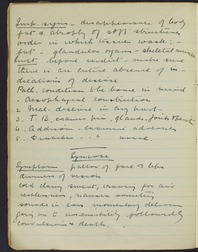 Imp. signs - disappearance of body
fat & atrophy of soft structures
order in which tissues waste:-
fat - glandular organs - skeletal muscles
heart before verdict - make sure
there is an entire absence of in-
dication of disease
Path. condition to be borne in mind
- Aesophageal constriction
2. Mal. disease in any part.
3. T.B. examine pin. glands, joints &
4. Addison - examine adrenals
5. 
Syncope
Symptoms pallor of face & lips
dimness of vision
cold clammy sweat, craving for air
restlessness, nausea vomiting
sounds in ears momentary delirium
pass on to insensibility followed by
convulsions & death.